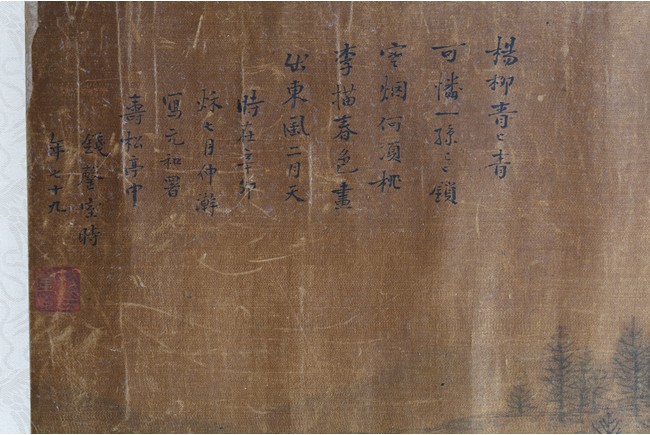 楊柳青〻青
可憐一孫〻鎖
寒烟何須桃
李描春色畫
出東風二月天
時在辛卯
秌七月仲澣
寫元和署
壽松亭中
錢奎堂時
年七十九